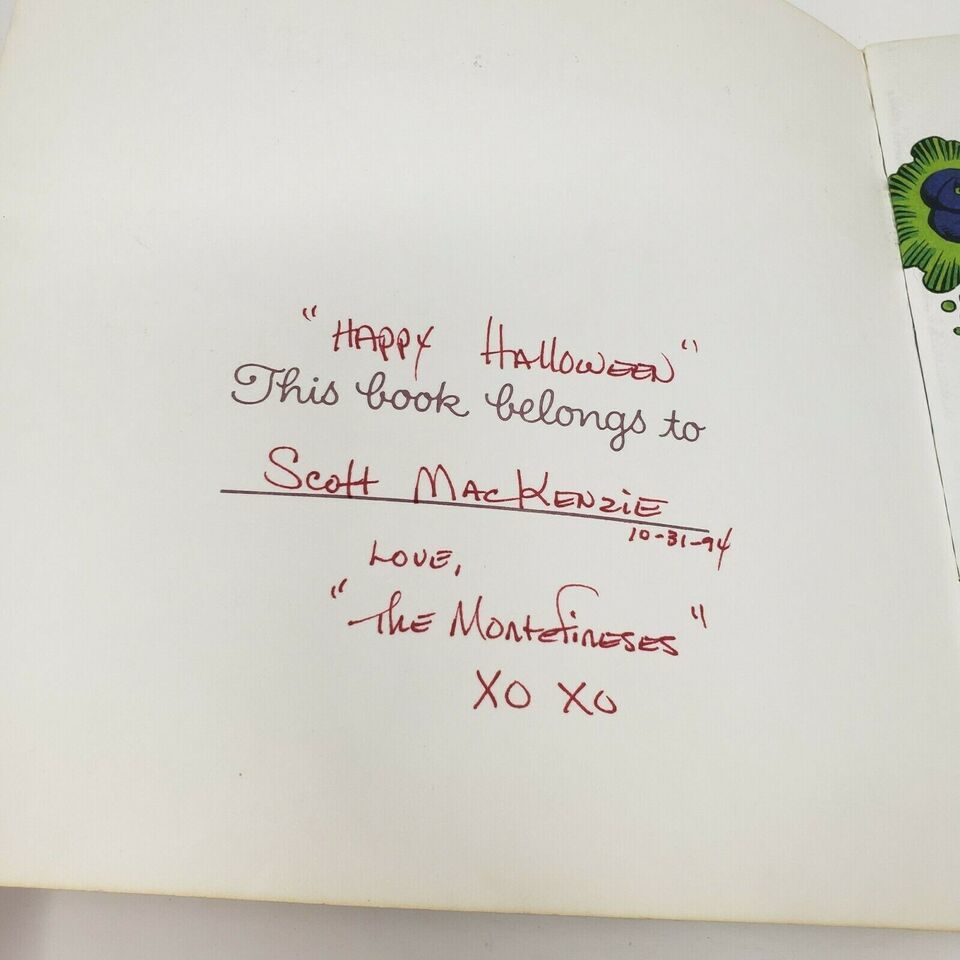 "HAPPY HALLOWEEN"
This book belongs to
Scott MacKENZiE
10-31-94
LOVE,
"The MonteFiReSES"
XO XO